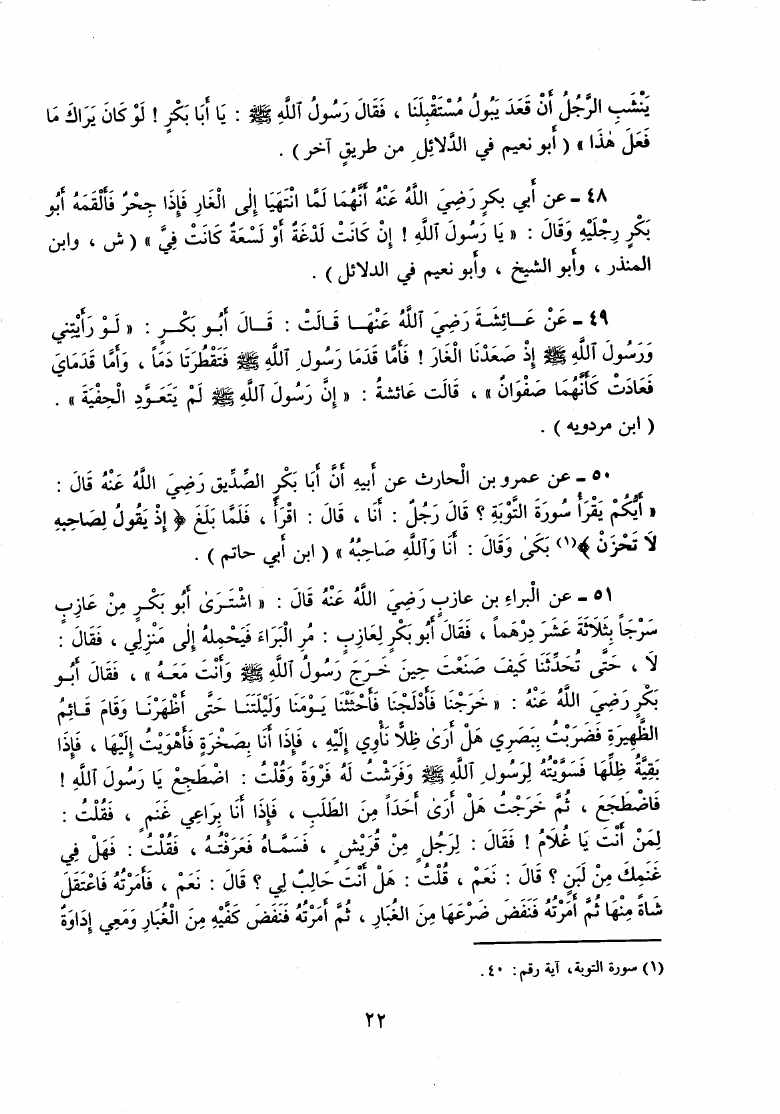 يَنْشَبِ الرَّجُلُ أَنْ قَعَدَ يَبُولُ مُسْتَقْبِلَنَا ، فَقَالَ رَسُولُ ٱللَّهِ ﷺ : يَا أَبَا بَكْرٍ ! لَوْ كَانَ يَرَاكَ مَا
فَعَلَ هٰذَا » ( أبو نعيم في الدَّلائِلِ من طريقٍ آخر ) .
٤٨ - عن أبي بكرٍ رَضِيَ اللَّهُ عَنْهُ أَنَّهُمَا لَمَّا انْتَهَيَا إِلَى الْغَارِ فَإِذَا جِحْرٌ فَأَلْقَمَهُ أَبُو
بَكْرٍ رِجْلَيْهِ وَقَالَ : « يَا رَسُولَ ٱللَّهِ ! إِنْ كَانَتْ لَدْغَةٌ أَوْ لَسْعَةٌ كَانَتْ فِيَّ » ( ش ، وابن
المنذر ، وأبو الشيخ ، وأبو نعيم في الدلائل ) .
٤٩ - عَنْ عَـائِشَـةَ رَضِيَ ٱللَّهُ عَنْهَـا قَـالَتْ : قَـالَ أَبُـو بَكْـرٍ : « لَـوْ رَأَيْتِنِي
وَرَسُولَ ٱللَّهِ ﷺ إِذْ صَعَدْنَا الْغَارَ ! فَأَمَّا قَدَمَا رَسُولِ ٱللَّهِ ﷺ فَتَقَطَّرَتَا دَمَاً ، وَأَمَّا قَدَمَايَ
فَعَادَتْ كَأَنَّهُمَا صَفْوَانٌ » ، قَالَت عَائشةُ : « إِنَّ رَسُولَ ٱللَّهِ ﷺ لَمْ يَتَعَـوَّدِ الْحِفْيَةَ » .
( ابن مردويه ) .
٥٠ - عن عمرو بن الْحارث عن أبيه أَنَّ أَبَا بَكْرٍ الصِّدِّيق رَضِيَ اللَّهُ عَنْهُ قَالَ :
« أَيُّكُمْ يَقْرَأُ سُورَةَ التَّوْبَةِ ؟ قَالَ رَجُلٌ : أَنَا ، قَالَ : اقْرَأْ ، فَلَمَّا بَلَغَ ﴿ إِذْ يَقُولُ لِصَاحِبِهِ
لَا تَحْزَنْ ﴾(١) بَكَىٰ وَقَالَ : أَنَا وَٱللَّهِ صَاحِبُهُ » ( ابن أبي حاتم ) .
٥١ - عن الْبراءِ بن عازبٍ رَضِيَ اللَّهُ عَنْهُ قَالَ : « اشْتَـرَىٰ أَبُو بَكْـرٍ مِنْ عَازِبٍ
سَرْجَاً بِثَلَاثَةَ عَشَرَ دِرْهَماً ، فَقَالَ أَبُو بَكْرٍ لِعَازِبٍ : مُرِ الْبَرَاءَ فَيَحْمِلهُ إِلَى مَنْزِلِي ، فَقَالَ :
لَا ، حَتَّى تُحَدِّثَنَا كَيفَ صَنَعْتَ حِينَ خَـرَجَ رَسُولُ ٱللَّهِ ﷺ وَأَنْتَ مَعَـهُ » ، فَقَالَ أَبُـو
بَكْرٍ رَضِيَ اللَّهُ عَنْهُ : « خَرَجْنَا فَأَدْلَجْنَا فَأَحْثَثْنَا يَـوْمَنَا وَلَيْلَتَنَـا حَتَّى أَظْهَرْنَـا وَقَامَ قَـائِمُ
الظَّهِيرَةِ فَضَرَبْتُ بِبَصَرِي هَلْ أَرَىٰ ظِلًّا نَأْوِي إِلَيْهِ ، فَإِذَا أَنَا بِصَخْرَةٍ فَأَهْوَيْتُ إِلَيْهَا ، فَإِذَا
بَقِيَّةُ ظِلِّهَا فَسَوَّيْتُهُ لِرَسُولِ ٱللَّهِ ﷺ وَفَرَشْتُ لَهُ فَرْوَةً وَقُلْتُ : اضْطَجِعْ يَا رَسُولَ ٱللَّهِ !
فَاضْطَجَعَ ، ثُمَّ خَرَجْتُ هَلْ أَرَىٰ أَحَدَاً مِنَ الطَّلَبِ ، فَإِذَا أَنَا بِرَاعِي غَنَمٍ ، فَقُلْتُ :
لِمَنْ أَنْتَ يَا غُلَامُ ! فَقَالَ : لِرَجُلٍ مِنْ قُرَيْشٍ ، فَسَمَّـاهُ فَعَرَفْتُـهُ ، فَقُلْتُ : فَهَلْ فِي
غَنَمِكَ مِنْ لَبَنٍ ؟ قَالَ : نَعَمْ ، قُلْتُ : هَلْ أَنْتَ حَالِبٌ لِي ؟ قَالَ : نَعَمْ ، فَأَمَرْتُهُ فَاعْتَقَلَ
شَاةً مِنْهَا ثُمَّ أَمَرْتُهُ فَنَفَضَ ضَرْعَهَا مِنَ الْغُبَارِ ، ثُمَّ أَمَرْتُهُ فَنَفَضَ كَفَّيْهِ مِنَ الْغُبَارِ وَمَعِي إِدَاوَةٌ
(١) سورة التوبة، آية رقم: ٤٠.
٢٢